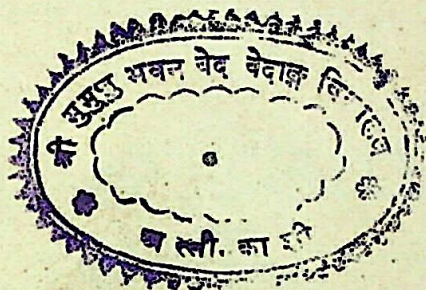 श्री मुमुक्षु भवन वेद वेदाङ्ग
अस्सी. का